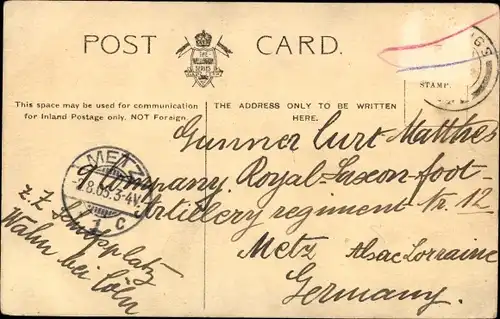 POST CARD.
THE WELLINGTON SERIES
This space may be used for communication
for Inland Postage only. NOT Foreign.
THE ADDRESS ONLY TO BE WRITTEN
HERE.
STAMP.
GS
METZ
8.05.3-4V.
1 C
Gunner Curt Matthes
9 Company Royal-Saxon-foot-
Artillery regiment Nr. 12
Metz Alsac Lorraine
Germany.
z. Z. Schießplatz
Wahn bei Cöln